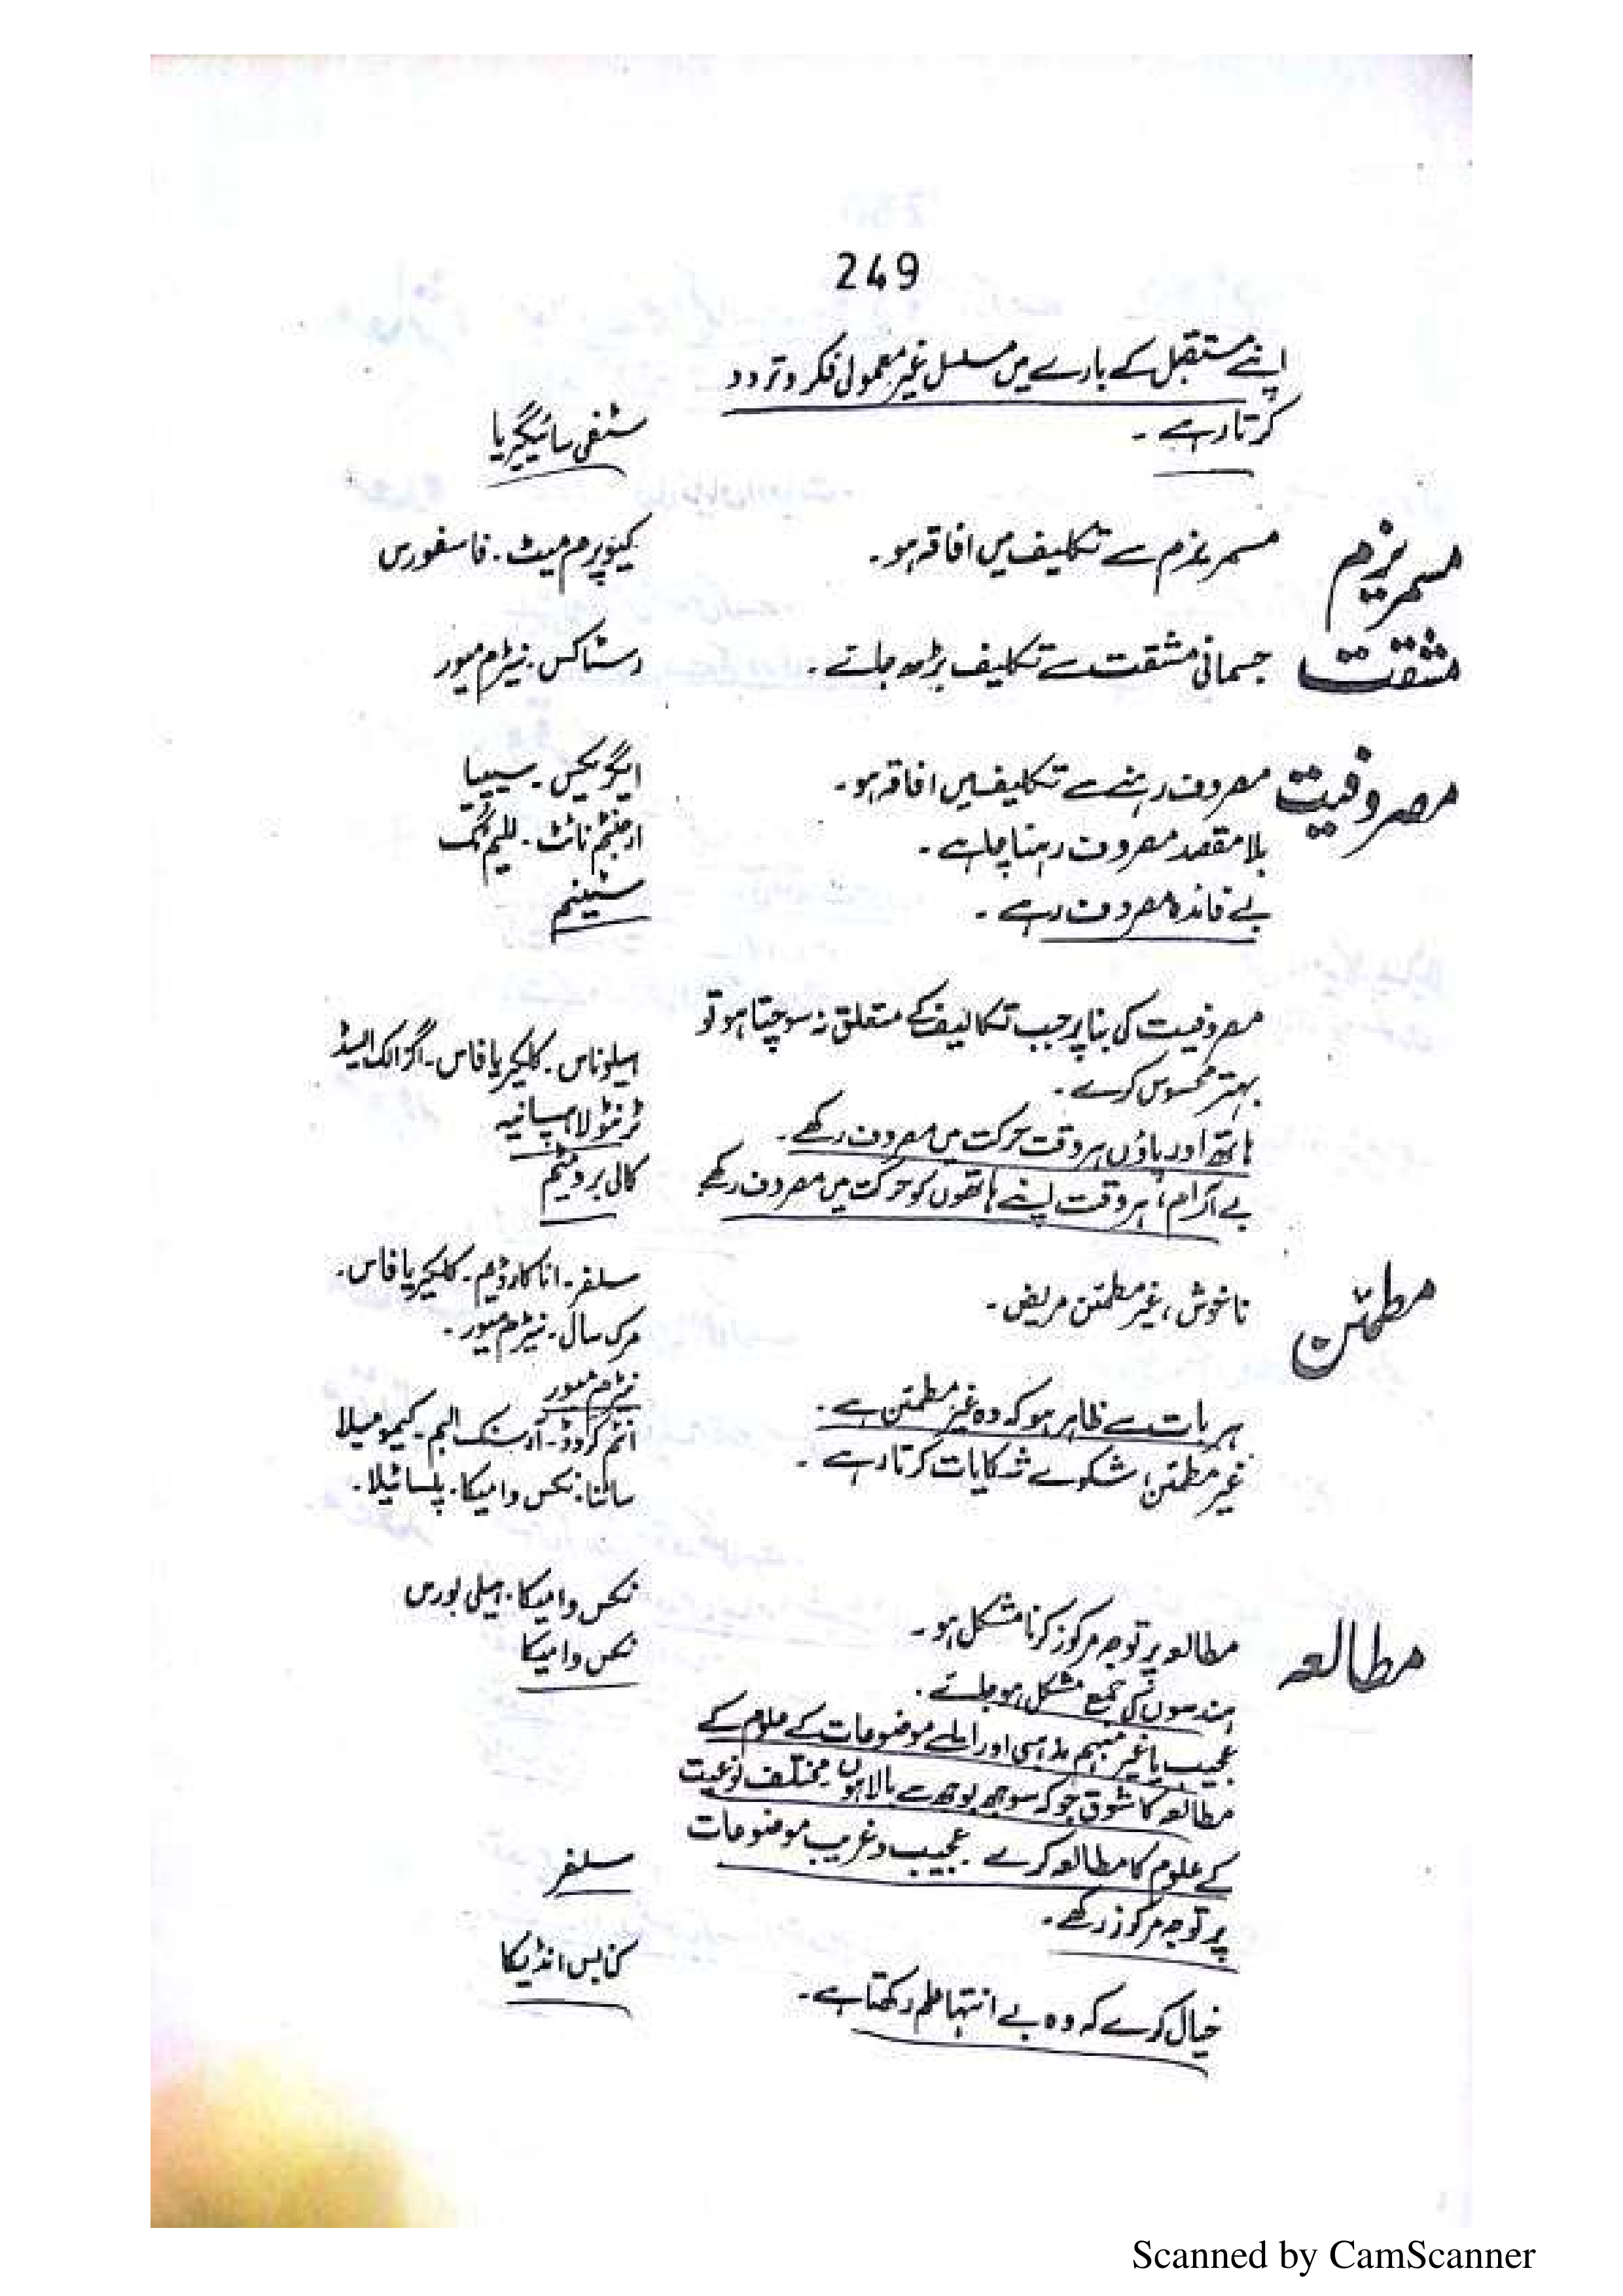 249
اپنے مستقبل کے بارے میں مسلسل غیر معمولی فکر و تردد
کرتا رہے ۔
سٹفی سائیگیریا
مسمریزم
مسمریزم سے تکلیف میں افاقہ ہو۔
کیوپرم میٹ ۔ فاسفورس
مشقت
جسمانی مشقت سے تکلیف بڑھ جائے ۔
رسٹاکس ۔ نیٹرم میور
مصروفیت
مصروف رہنے سے تکلیف میں افاقہ ہو۔
ایگویکس ۔ سیپیا
بلا مقصد مصروف رہنا چاہے ۔
ارجنٹم نائٹ ۔ للیم ٹگ
بے فائدہ مصروف رہے ۔
سٹینم
مصروفیت کی بنا پر جب تکالیف کے متعلق نہ سوچتا ہو تو
بہتر محسوس کرے ۔
ہیلوناس ۔ کلکیریا فاس ۔ اگزالک ایسڈ
ہاتھ اور پاؤں ہر وقت حرکت میں مصروف رکھے ۔
ٹرنٹولا ہسپانیہ
بے آرام، ہر وقت اپنے ہاتھوں کو حرکت میں مصروف رکھے
کالی برومیٹم
مطمئن
ناخوش، غیر مطمئن مریض ۔
سلفر ۔ اناکارڈیم ۔ کلکیریا فاس ۔
مرک سال ۔ نیٹرم میور ۔
ہر بات سے ظاہر ہو کہ وہ غیر مطمئن ہے ۔
نیٹرم میور
غیر مطمئن، شکوے شکایات کرتا رہے ۔
انٹم کروڈ ۔ آرسنک البم ۔ کیمومیلا
سائنا ۔ نکس وامیکا ۔ پلساٹیلا ۔
مطالعہ
مطالعہ پر توجہ مرکوز کرنا مشکل ہو ۔
نکس وامیکا ۔ ہیلی بورس
ہندسوں کی جمع مشکل ہو جائے ۔
نکس وامیکا
عجیب یا غیر مبہم مذہبی اور ایسے موضوعات کے علوم کے
مطالعہ کا شوق جو کہ سوجھ بوجھ سے بالا ہوں مختلف نوعیت
کے علوم کا مطالعہ کرے ۔ عجیب و غریب موضوعات
پر توجہ مرکوز رکھے ۔
سلفر
خیال کرے کہ وہ بے انتہا علم رکھتا ہے ۔
کنابس انڈیکا
Scanned by CamScanner